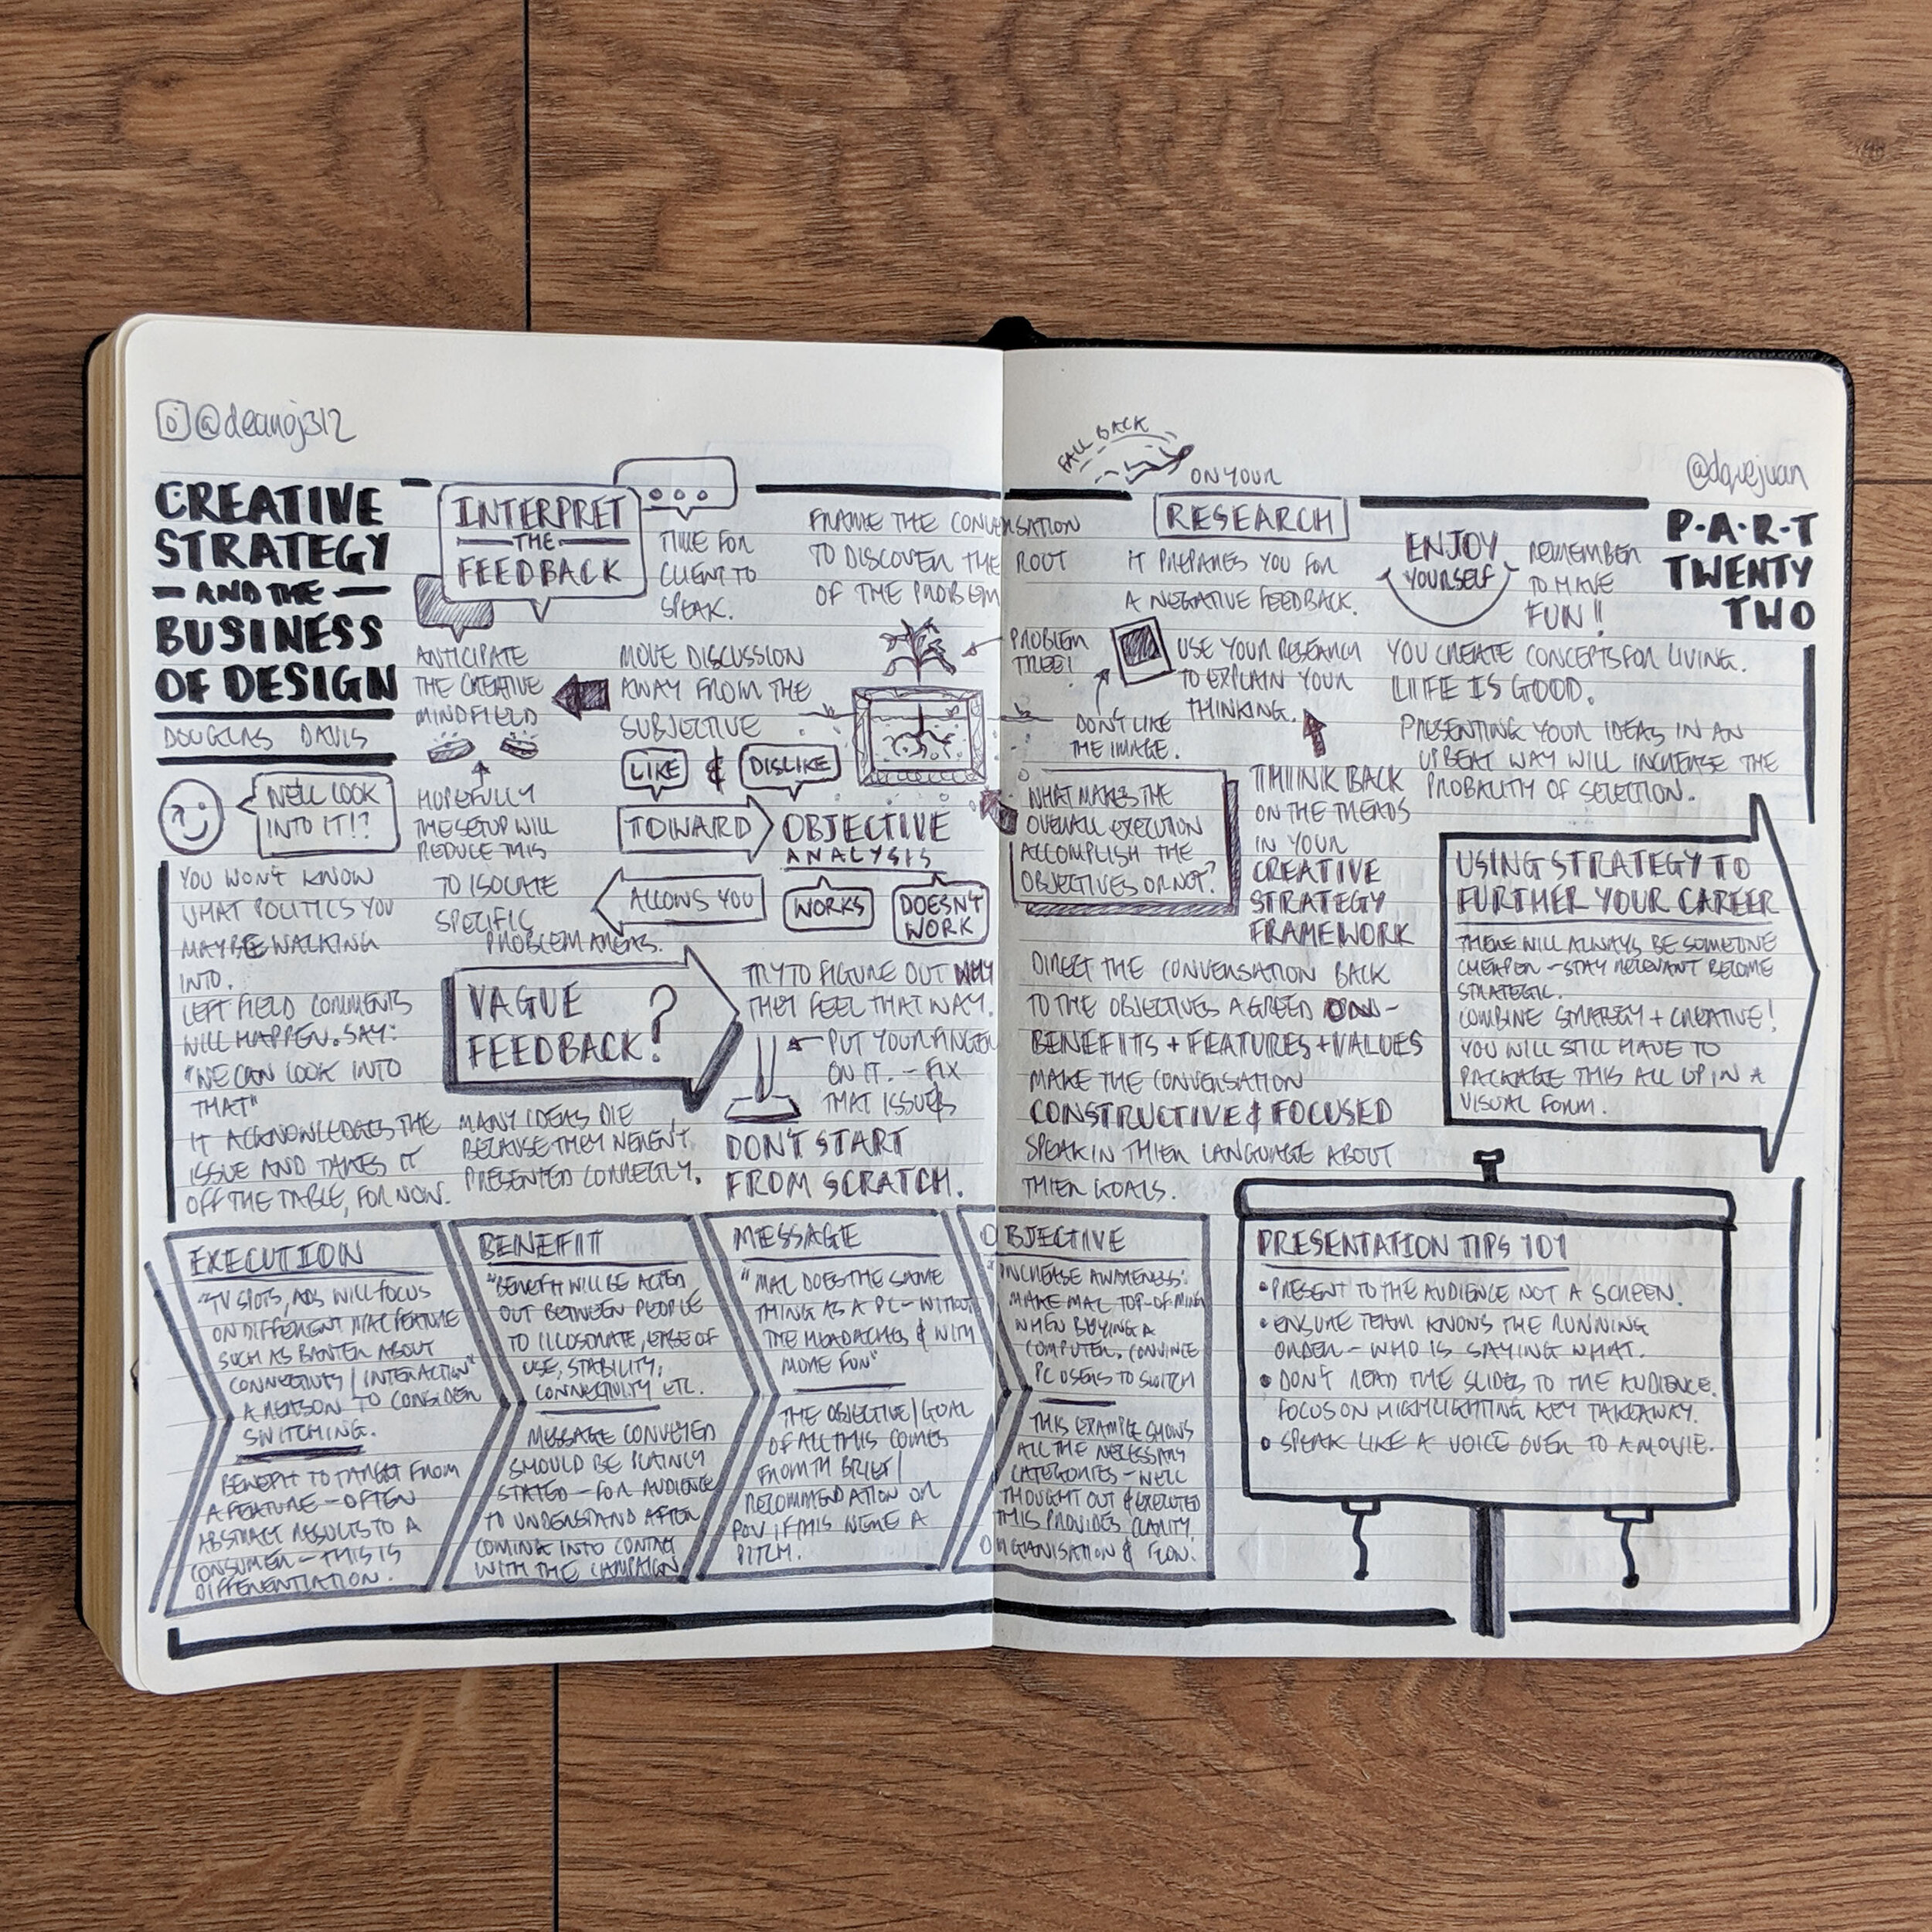 @deanoj312
CREATIVE
STRATEGY
- AND THE -
BUSINESS
OF DESIGN
DOUGLAS DAVIS
WE'LL LOOK
INTO IT!?
YOU WON'T KNOW
WHAT POLITICS YOU
MAYBE WALKING
INTO.
LEFT FIELD COMMENTS
WILL HAPPEN. SAY:
"WE CAN LOOK INTO
THAT"
IT ACKNOWLEDGES THE
ISSUE AND TAKES IT
OFF THE TABLE, FOR NOW.
INTERPRET
THE
FEEDBACK
TIME FOR
CLIENT TO
SPEAK.
FRAME THE CONVERSATION
TO DISCOVER THE ROOT
OF THE PROBLEM
PROBLEM
TREE!
ANTICIPATE
THE CREATIVE
MINDFIELD
HOPEFULLY
THE SETUP WILL
REDUCE THIS
MOVE DISCUSSION
AWAY FROM THE
SUBJECTIVE
LIKE & DISLIKE
TOWARD OBJECTIVE
ANALYSIS
WORKS DOESN'T
WORK
ALLOWS YOU
TO ISOLATE
SPECIFIC
PROBLEM AREAS.
VAGUE
FEEDBACK?
TRY TO FIGURE OUT WHY
THEY FEEL THAT WAY.
PUT YOUR FINGER
ON IT. - FIX
THAT ISSUE
DON'T START
FROM SCRATCH.
MANY IDEAS DIE
BECAUSE THEY WEREN'T
PRESENTED CORRECTLY.
FALL BACK
ON YOUR
RESEARCH
IT PREPARES YOU FOR
A NEGATIVE FEEDBACK.
USE YOUR RESEARCH
TO EXPLAIN YOUR
THINKING.
DON'T LIKE
THE IMAGE.
WHAT MAKES THE
OVERALL EXECUTION
ACCOMPLISH THE
OBJECTIVES OR NOT?
THIINK BACK
ON THE THREADS
IN YOUR
CREATIVE
STRATEGY
FRAMEWORK
DIRECT THE CONVERSATION BACK
TO THE OBJECTIVES AGREED ON -
BENEFITS + FEATURES + VALUES
MAKE THE CONVERSATION
CONSTRUCTIVE & FOCUSED
SPEAK IN THIER LANGUAGE ABOUT
THIER GOALS.
@dquejuan
P·A·R·T
TWENTY
TWO
ENJOY
YOURSELF
REMEMBER
TO HAVE
FUN!!
YOU CREATE CONCEPTS FOR LIVING.
LIIFE IS GOOD.
PRESENTING YOUR IDEAS IN AN
UPBEAT WAY WILL INCREASE THE
PROBALITY OF SELECTION.
USING STRATEGY TO
FURTHER YOUR CAREER
THERE WILL ALWAYS BE SOMEONE
CHEAPER - STAY RELEVANT BECOME
STRATEGIC.
COMBINE STRATEGY + CREATIVE!
YOU WILL STILL HAVE TO
PACKAGE THIS ALL UP IN A
VISUAL FORM.
EXECUTION
"TV SPOTS, ADS WILL FOCUS
ON DIFFERENT MAC FEATURE
SUCH AS BANTER ABOUT
CONNECTIVITY / INTERACTION"
A REASON TO CONSIDER
SWITCHING.
BENEFIT TO TARGET FROM
A FEATURE - OFTEN
ABSTRACT RESULTS TO A
CONSUMER - THIS IS
DIFFERENTIATION.
BENEFIT
"BENEFIT WILL BE ACTED
OUT BETWEEN PEOPLE
TO ILLUSTRATE, EASE OF
USE, STABILITY,
CONNECTIVITY ETC.
MESSAGE CONVEYED
SHOULD BE PLAINLY
STATED - FOR AUDIENCE
TO UNDERSTAND AFTER
COMING INTO CONTACT
WITH THE CAMPAIGN
MESSAGE
"MAC DOES THE SAME
THING AS A PC - WITHOUT
THE HEADACHES & WITH
MORE FUN"
THE OBJECTIVE / GOAL
OF ALL THIS COMES
FROM TH BRIEF /
RECOMMENDATION OR
POV IF THIS WERE A
PITCH.
OBJECTIVE
"INCREASE AWARENESS:
MAKE MAC TOP-OF-MIND
WHEN BUYING A
COMPUTER. CONVINCE
PC USERS TO SWITCH
THIS EXAMPLE SHOWS
ALL THE NECESSARY
CATEGORIES - WELL
THOUGHT OUT & EXECUTED
THIS PROVIDES CLARITY,
ORGANISATION & FLOW.
PRESENTATION TIPS 101
• PRESENT TO THE AUDIENCE NOT A SCREEN.
• ENSURE TEAM KNOWS THE RUNNING
ORDER - WHO IS SAYING WHAT.
• DON'T READ THE SLIDES TO THE AUDIENCE.
FOCUS ON HIGHLIGHTING KEY TAKEAWAY.
• SPEAK LIKE A VOICE OVER TO A MOVIE.